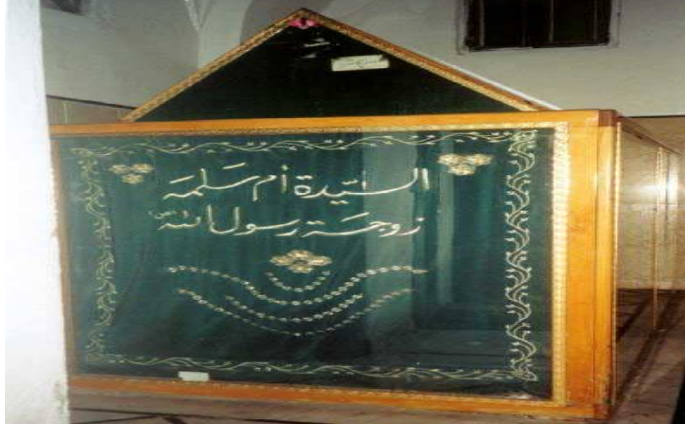 السيّدة أم سلمه
زوجة رسول الله